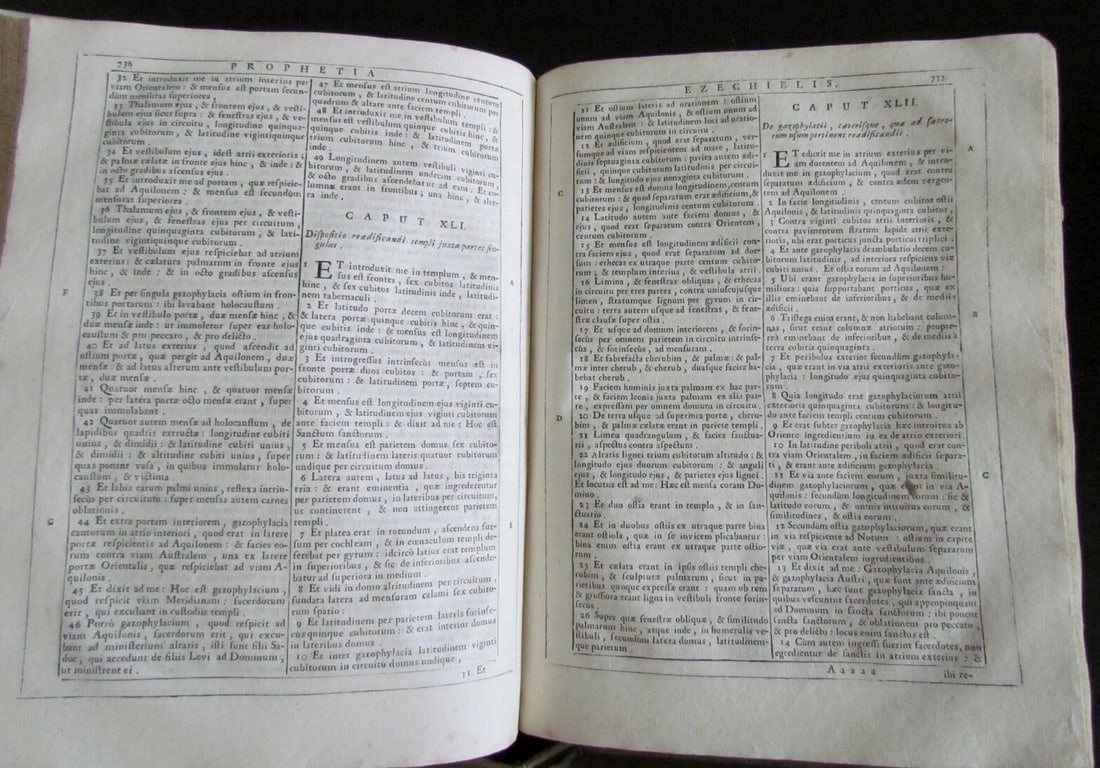 736
PROPHETIA
32 Et introduxit me in atrium interius per
viam Orientalem : & menſus eſt portam ſecun-
dùm menſuras ſuperiores ,
33 Thalamum ejus , & frontem ejus , & veſti-
bulum ejus ſicut ſupra : & feneſtras ejus , & ve-
ſtibula ejus in circuitu , longitudine quinqua-
ginta cubitorum , & latitudine vigintiquinque
cubitorum .
34 Et veſtibulum ejus , ideſt atrii exterioris ;
& palmæ cælatæ in fronte ejus hinc , & inde : &
in octo gradibus aſcenſus ejus .
35 Et introduxit me ad portam , quæ reſpicie-
bat ad Aquilonem : & menſus eſt ſecundùm
menſuras ſuperiores .
36 Thalamum ejus , & frontem ejus , & veſti-
bulum ejus , & feneſtras ejus per circuitum ,
longitudine quinquaginta cubitorum , & lati-
tudine vigintiquinque cubitorum .
37 Et veſtibulum ejus reſpiciebat ad atrium
exterius : & cælatura palmarum in fronte ejus
hinc , & inde : & in octo gradibus aſcenſus
ejus .
F
38 Et per ſingula gazophylacia oſtium in fron-
tibus portarum : ibi lavabant holocauſtum .
39 Et in veſtibulo portæ , duæ menſæ hinc , &
duæ menſæ inde : ut immoletur ſuper eas holo-
cauſtum & pro peccato , & pro delicto .
40 Et ad latus exterius , quod aſcendit ad
oſtium portæ , quæ pergit ad Aquilonem , duæ
menſæ : & ad latus alterum ante veſtibulum por-
tæ , duæ menſæ .
41 Quatuor menſæ hinc , & quatuor menſæ
inde : per latera portæ octo menſæ erant , ſuper
quas immolabant .
42 Quatuor autem menſæ ad holocauſtum , de
lapidibus quadris extructæ : longitudine cubiti
unius , & dimidii : & latitudine cubiti unius ,
& dimidii : & altitudine cubiti unius , ſuper
quas ponant vaſa , in quibus immolatur holo-
cauſtum , & victima .
43 Et labia earum palmi unius , reflexa intrin-
ſecùs per circuitum : ſuper menſas autem carnes
oblationis .
G
44 Et extra portam interiorem , gazophylacia
cantorum in atrio interiori , quod erat in latere
portæ reſpicientis ad Aquilonem : & facies eo-
rum contra viam Auſtralem , una ex latere
portæ Orientalis , quæ reſpiciebat ad viam A-
quilonis .
45 Et dixit ad me : Hoc eſt gazophylacium ,
quod reſpicit viam Meridianam : ſacerdotum
erit , qui excubant in cuſtodiis templi .
46 Porrò gazophylacium , quod reſpicit ad
viam Aquilonis , ſacerdotum erit , qui excu-
bant ad miniſterium altaris , iſti ſunt filii Sa-
doc , qui accedunt de filiis Levi ad Dominum ,
ut miniſtrent ei .
47 Et menſus eſt atrium longitudine centum
cubitorum , & latitudine centum cubitorum per
quadrum & altare ante faciem templi .
48 Et introduxit me in veſtibulum templi : &
menſus eſt veſtibulum quinque cubitis hinc , &
quinque cubitis inde : & latitudinem portæ
trium cubitorum hinc , & trium cubitorum
inde .
49 Longitudinem autem veſtibuli viginti cu-
bitorum , & latitudinem undecim cubitorum ,
& octo gradibus aſcendebatur ad eam . Et co-
lumnæ erant in frontibus ; una hinc , & alte-
ra inde .
CAPUT XLI.
Diſpoſitio reædificandi templi juxta partes ſin-
gulas .
1 ET introduxit me in templum , & men-
ſus eſt frontes , ſex cubitos latitudinis
hinc , & ſex cubitos latitudinis inde , latitudi-
nem tabernaculi .
A
2 Et latitudo portæ decem cubitorum erat :
& latera portæ quinque cubitis hinc , & quin-
que cubitis inde : & menſus eſt longitudinem
ejus quadraginta cubitorum , & latitudinem vi-
ginti cubitorum .
3 Et introgreſſus intrinſecùs menſus eſt in
fronte portæ duos cubitos : & portam , ſex
cubitorum : & latitudinem portæ , ſeptem cu-
bitorum .
4 Et menſus eſt longitudinem ejus viginti cu-
bitorum , & latitudinem ejus viginti cubitorum
ante faciem templi : & dixit ad me : Hoc eſt
Sanctum ſanctorum .
5 Et menſus eſt parietem domus ſex cubito-
rum : & latitudinem lateris quatuor cubitorum
undique per circuitum domus .
6 Latera autem , latus ad latus , bis triginta
tria : & erant eminentia , quæ ingrederentur
per parietem domus , in lateribus per circuitum,
ut continerent , & non attingerent parietem
templi .
B
7 Et platea erat in rotundum , aſcendens ſur-
ſum per cochleam , & in cœnaculum templi de-
ferebat per gyrum : idcircò latius erat templum
in ſuperioribus , & ſic de inferioribus aſcende-
batur ad ſuperiora in medium .
8 Et vidi in domo altitudinem per circuitum ,
fundata latera ad menſuram calami ſex cubito-
rum ſpatio :
9 Et latitudinem per parietem lateris forinſe-
cus quinque cubitorum : & erat interior domus
in lateribus domus .
10 Et inter gazophylacia latitudinem viginti
cubitorum in circuitu domus undique ,
11 Et
EZECHIELIS.
11 Et oſtium lateris ad orationem : oſtium
unum ad viam Aquilonis , & oſtium unum ad
viam Auſtralem : & latitudinem loci ad oratio-
nem quinque cubitorum in circuitu .
12 Et ædificium , quod erat ſeparatum , ver-
ſumque ad viam reſpicientem ad mare , latitu-
dinis ſeptuaginta cubitorum : paries autem ædi-
ficii , quinque cubitorum latitudinis per circui-
tum : & longitudo ejus nonaginta cubitorum .
C
13 Et menſus eſt domus longitudinem,centum
cubitorum : & quod ſeparatum erat ædificium,&
parietes ejus , longitudinis centum cubitorum .
14 Latitudo autem ante faciem domus , &
ejus , quod erat ſeparatum contra Orientem ,
centum cubitorum .
15 Et menſus eſt longitudinem ædificii con-
tra faciem ejus , quod erat ſeparatum ad dor-
ſum : ethecas ex utraque parte centum cubito-
rum ; & templum interius , & veſtibula atrii .
16 Limina , & feneſtras obliquas , & ethecas
in circuitu per tres partes , contra uniuſcujuſque
limen , ſtratumque lignum per gyrum in cir-
cuitu : terra autem uſque ad feneſtras , & fene-
ſtræ clauſæ ſuper oſtia .
17 Et uſque ad domum interiorem , & forin-
ſecùs per omnem parietem in circuitu intrinſe-
cùs , & forinſecùs , ad menſuram .
18 Et fabrefacta cherubim , & palmæ : & pal-
ma inter cherub , & cherub , duaſque facies ha-
bebat cherub .
19 Faciem hominis juxta palmam ex hac par-
te , & faciem leonis juxta palmam ex alia par-
te , expreſſam per omnem domum in circuitu .
D
20 De terra uſque ad ſuperiora portæ , cheru-
bim , & palmæ cælatæ erant in pariete templi .
21 Limen quadrangulum , & facies ſanctua-
rii , aſpectus contra aſpectum .
22 Altaris lignei trium cubitorum altitudo : &
longitudo ejus duorum cubitorum : & anguli
ejus , & longitudo ejus , & parietes ejus lignei .
Et locutus eſt ad me : Hæc eſt menſa coram Do-
mino .
23 Et duo oſtia erant in templo , & in ſan-
ctuario .
24 Et in duobus oſtiis ex utraque parte bina
erant oſtiola , quæ in ſe invicem plicabantur :
bina enim oſtia erant ex utraque parte oſtio-
rum .
25 Et cælata erant in ipſis oſtiis templi che-
rubim , & ſculpturæ palmarum , ſicut in pa-
rietibus quoque expreſſæ erant : quam ob rem
& groſſiora erant ligna in veſtibuli fronte forin-
ſecùs .
26 Super quæ feneſtræ obliquæ , & ſimilitudo
palmarum hinc , atque inde , in humerulis ve-
ſtibuli , ſecundùm latera domus , latitudinem-
que parietum .
CAPUT XLII.
De gazophylaciis , cæteriſque , quæ ad ſacro-
rum uſum pertinent reædificandis .
A
1 ET eduxit me in atrium exterius per vi-
am ducentem ad Aquilonem , & intro-
duxit me in gazophylacium , quod erat contra
ſeparatum ædificium , & contra ædem vergen-
tem ad Aquilonem .
2 In facie longitudinis , centum cubitos oſtii
Aquilonis , & latitudinis quinquaginta cubitos ,
3 Contra viginti cubitos atrii interioris , &
contra pavimentum ſtratum lapide atrii exte-
rioris , ubi erat porticus juncta porticui triplici .
4 Et ante gazophylacia deambulatio decem cu-
bitorum latitudinis , ad interiora reſpiciens viæ
cubiti unius . Et oſtia eorum ad Aquilonem :
5 Ubi erant gazophylacia in ſuperioribus hu-
miliora : quia ſupportabant porticus , quæ ex
illis eminebant de inferioribus , & de mediis
ædificii .
B
6 Triſtega enim erant , & non habebant colum-
nas , ſicut erant columnæ atriorum : propte-
reà eminebant de inferioribus , & de mediis à
terra cubitis quinquaginta .
7 Et peribolus exterior ſecundùm gazophyla-
cia , quæ erant in via atrii exterioris ante gazo-
phylacia : longitudo ejus quinquaginta cubito-
rum .
8 Quia longitudo erat gazophylaciorum atrii
exterioris quinquaginta cubitorum : & longitu-
do ante faciem templi centum cubitorum .
9 Et erat ſubter gazophylacia hæc introitus ab
Oriente ingredientium in ea de atrio exteriori .
10 In latitudine periboli atrii , quod erat con-
tra viam Orientalem , in faciem ædificii ſepara-
ti , & erant ante ædificium gazophylacia .
C
11 Et via ante faciem eorum , juxta ſimilitu-
dinem gazophylaciorum , quæ erant in via A-
quilonis : ſecundùm longitudinem eorum : ſic &
latitudo eorum , & omnis introitus eorum , &
ſimilitudines , & oſtia eorum .
12 Secundùm oſtia gazophylaciorum, quæ erant
in via reſpiciente ad Notum : oſtium in capite
viæ , quæ via erat ante veſtibulum ſeparatum
per viam Orientalem ingredientibus .
13 Et dixit ad me : Gazophylacia Aquilonis ,
& gazophylacia Auſtri , quæ ſunt ante ædificium
ſeparatum , hæc ſunt gazophylacia ſancta , in
quibus veſcuntur ſacerdotes , qui appropinquant
ad Dominum in ſancta ſanctorum : ibi ponent
ſancta ſanctorum , & oblationem pro peccato ,
& pro delicto : locus enim ſanctus eſt .
14 Cùm autem ingreſſi fuerint ſacerdotes, non
egredientur de ſanctis in atrium exterius : &
Aaaaa
ibi re-